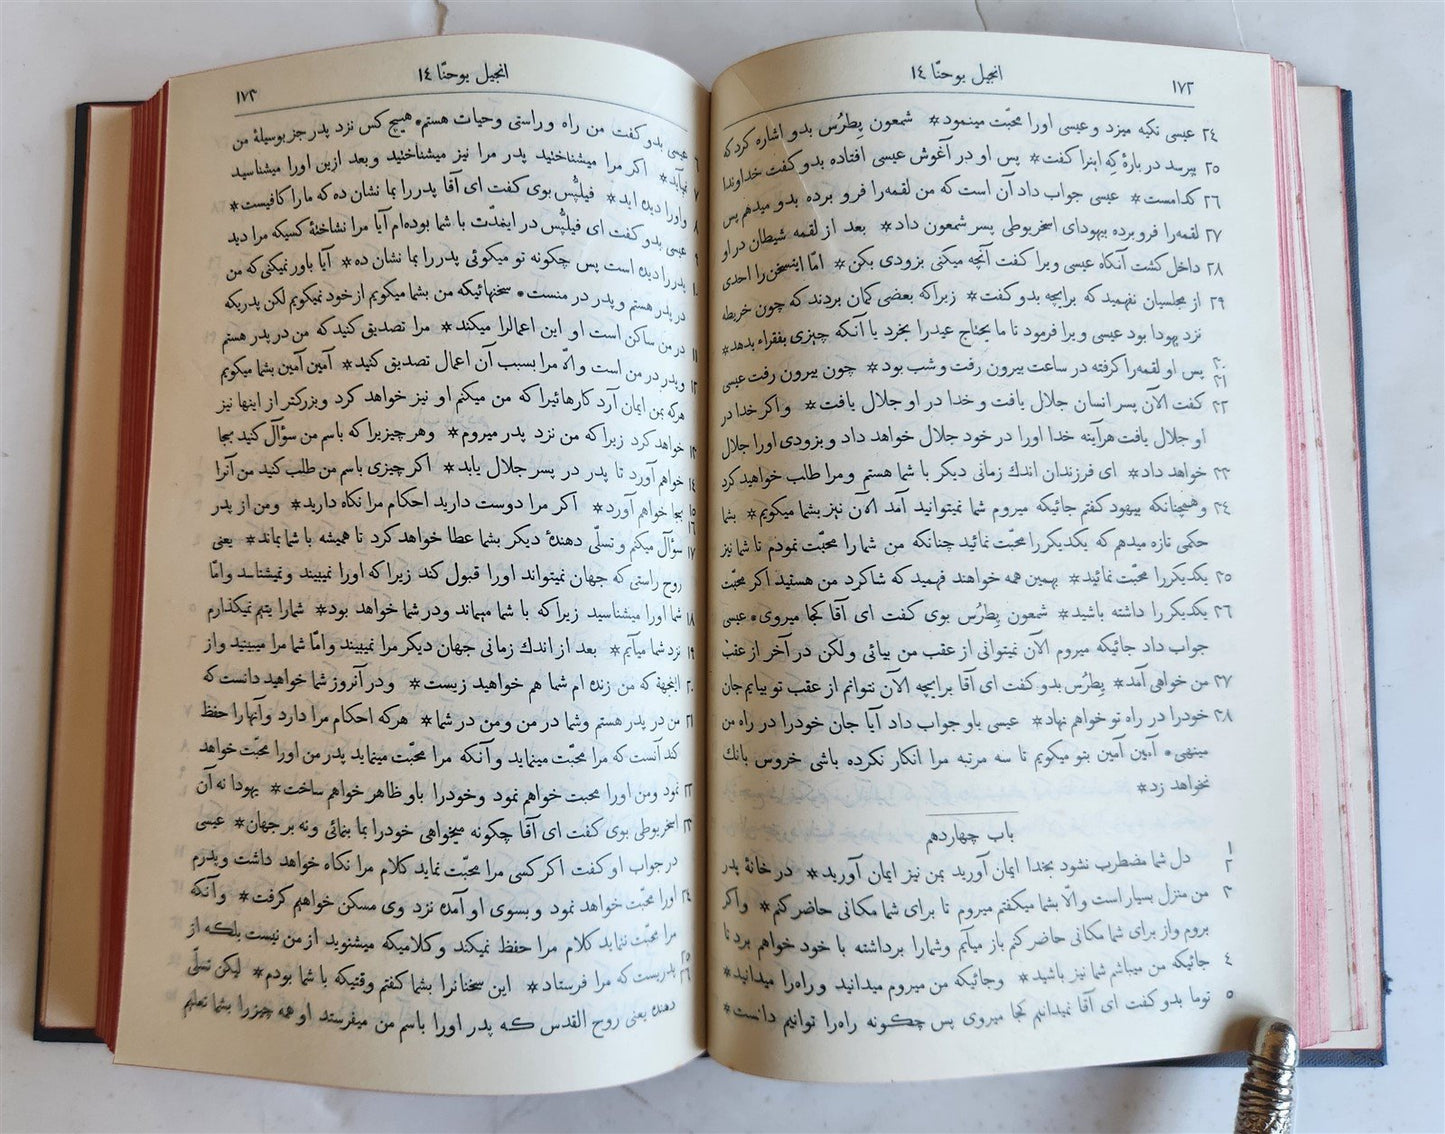 ١٧٢
انجیل یوحنّا ١٤
٢٤ عیسی تکیه میزد و عیسی اورا محبّت مینمود * شمعون پِطرُس بدو اشاره کرد که
٢٥ بپرسد در بارهٔ که اینرا کفت * پس او در آغوش عیسی افتاده بدو کفت خداوندا
٢٦ کدامست * عیسی جواب داد آن است که من لقمه‌را فرو برده بدو میدهم پس
٢٧ لقمه‌را فرو برده بیهودای اسخریوطی پسر شمعون داد * بعد از لقمه شیطان در او
٢٨ داخل کشت آنکاه عیسی ویرا کفت آنچه میکنی بزودی بکن * امّا اینسخن‌را احدی
٢٩ از مجلسیان نفهمید که برایچه بدو کفت * زیرا که بعضی کمان بردند که چون خریطه
نزد یهودا بود عیسی ویرا فرمود تا ما یحتاج عیدرا بخرد یا آنکه چیزی بفقراء بدهد *
٣٠ ٣١ پس او لقمه‌را کرفته در ساعت بیرون رفت و شب بود * چون بیرون رفت عیسی
٣٢ کفت الآن پسر انسان جلال یافت و خدا در او جلال یافت * و اکر خدا در
او جلال یافت هرآینه خدا اورا در خود جلال خواهد داد و بزودی اورا جلال
٣٣ خواهد داد * ای فرزندان اندك زمانی دیکر با شما هستم و مرا طلب خواهید کرد
٣٤ و همچنانکه بیهود کفتم جائیکه میروم شما نمیتوانید آمد الآن نیز بشما میکویم * بشما
حکمی تازه میدهم که یکدیکررا محبّت نمائید چنانکه من شمارا محبّت نمودم تا شما نیز
٣٥ یکدیکررا محبّت نمائید * بهمین همه خواهند فهمید که شاکرد من هستید اکر محبّت
٣٦ یکدیکررا داشته باشید * شمعون پِطرُس بوی کفت ای آقا کجا میروی • عیسی
جواب داد جائیکه میروم الآن نمیتوانی از عقب من بیائی ولکن در آخر از عقب
٣٧ من خواهی آمد * پِطرُس بدو کفت ای آقا برایچه الآن نتوانم از عقب تو بیایم جان
٣٨ خودرا در راه تو خواهم نهاد * عیسی باو جواب داد آیا جان خودرا در راه من
مینهی • آمین آمین بتو میکویم تا سه مرتبه مرا انکار نکرده باشی خروس بانك
نخواهد زد *
باب چهاردهم
١ ٢ دل شما مضطرب نشود بخدا ایمان آورید بمن نیز ایمان آورید * در خانهٔ پدر
٣ من منزل بسیار است والّا بشما میکفتم میروم تا برای شما مکانی حاضر کنم * و اکر
بروم و از برای شما مکانی حاضر کنم باز میآیم و شمارا برداشته با خود خواهم برد تا
٤ جائیکه من میباشم شما نیز باشید * و جائیکه من میروم میدانید و راه‌را میدانید *
٥ توما بدو کفت ای آقا نمیدانیم کجا میروی پس چکونه راه‌را توانیم دانست *
انجیل یوحنّا ١٤
١٧٣
٦ عیسی بدو کفت من راه و راستی و حیات هستم • هیچ کس نزد پدر جز بوسیلهٔ من
٧ نمیآید * اکر مرا میشناختید پدر مرا نیز میشناختید و بعد ازین اورا میشناسید
٨ و اورا دیده اید * فیلپُّس بوی کفت ای آقا پدررا بما نشان ده که مارا کافیست *
٩ عیسی بدو کفت ای فیلپُّس در اینمدّت با شما بوده‌ام آیا مرا نشناختهٔ کسیکه مرا دید
١٠ پدررا دیده است پس چکونه تو میکوئی پدررا بما نشان ده * آیا باور نمیکنی که من
در پدر هستم و پدر در منست • سخنهائیکه من بشما میکویم از خود نمیکویم لکن پدریکه
١١ در من ساکن است او این اعمالرا میکند * مرا تصدیق کنید که من در پدر هستم
١٢ و پدر در من است والّا مرا بسبب آن اعمال تصدیق کنید * آمین آمین بشما میکویم
هرکه بمن ایمان آرد کارهائیرا که من میکنم او نیز خواهد کرد و بزرکتر از اینها نیز
١٣ خواهد کرد زیرا که من نزد پدر میروم * و هر چیزیرا که باسم من سؤآل کنید بجا
١٤ خواهم آورد تا پدر در پسر جلال یابد * اکر چیزی باسم من طلب کنید من آنرا
١٥ ١٦ بجا خواهم آورد * اکر مرا دوست دارید احکام مرا نکاه دارید * و من از پدر
١٧ سؤآل میکنم و تسلّی دهندهٔ دیکر بشما عطا خواهد کرد تا همیشه با شما بماند * یعنی
روح راستی که جهان نمیتواند اورا قبول کند زیرا که اورا نمیبیند و نمیشناسد و امّا
١٨ شما اورا میشناسید زیرا که با شما میماند و در شما خواهد بود * شمارا یتیم نمیکذارم
١٩ نزد شما میآیم * بعد از اندك زمانی جهان دیکر مرا نمیبیند و امّا شما مرا میبینید و از
٢٠ اینجهة که من زنده ام شما هم خواهید زیست * و در آنروز شما خواهید دانست که
٢١ من در پدر هستم و شما در من و من در شما * هرکه احکام مرا دارد و آنهارا حفظ
کند آنست که مرا محبّت مینماید و آنکه مرا محبّت مینماید پدر من اورا محبّت خواهد
٢٢ نمود و من اورا محبت خواهم نمود و خودرا باو ظاهر خواهم ساخت * یهودا نه آن
٢٣ اسخریوطی بوی کفت ای آقا چکونه میخواهی خودرا بما بنمائی و نه بر جهان * عیسی
در جواب او کفت اکر کسی مرا محبّت نماید کلام مرا نکاه خواهد داشت و پدرم
٢٤ اورا محبّت خواهد نمود و بسوی او آمده نزد وی مسکن خواهیم کرفت * و آنکه
مرا محبّت ننماید کلام مرا حفظ نمیکند و کلامیکه میشنوید از من نیست بلکه از
٢٥ ٢٦ پدریست که مرا فرستاد * این سخنانرا بشما کفتم وقتیکه با شما بودم * لیکن تسلّی
دهنده یعنی روح القدس که پدر اورا باسم من میفرستد او همه چیزرا بشما تعلیم